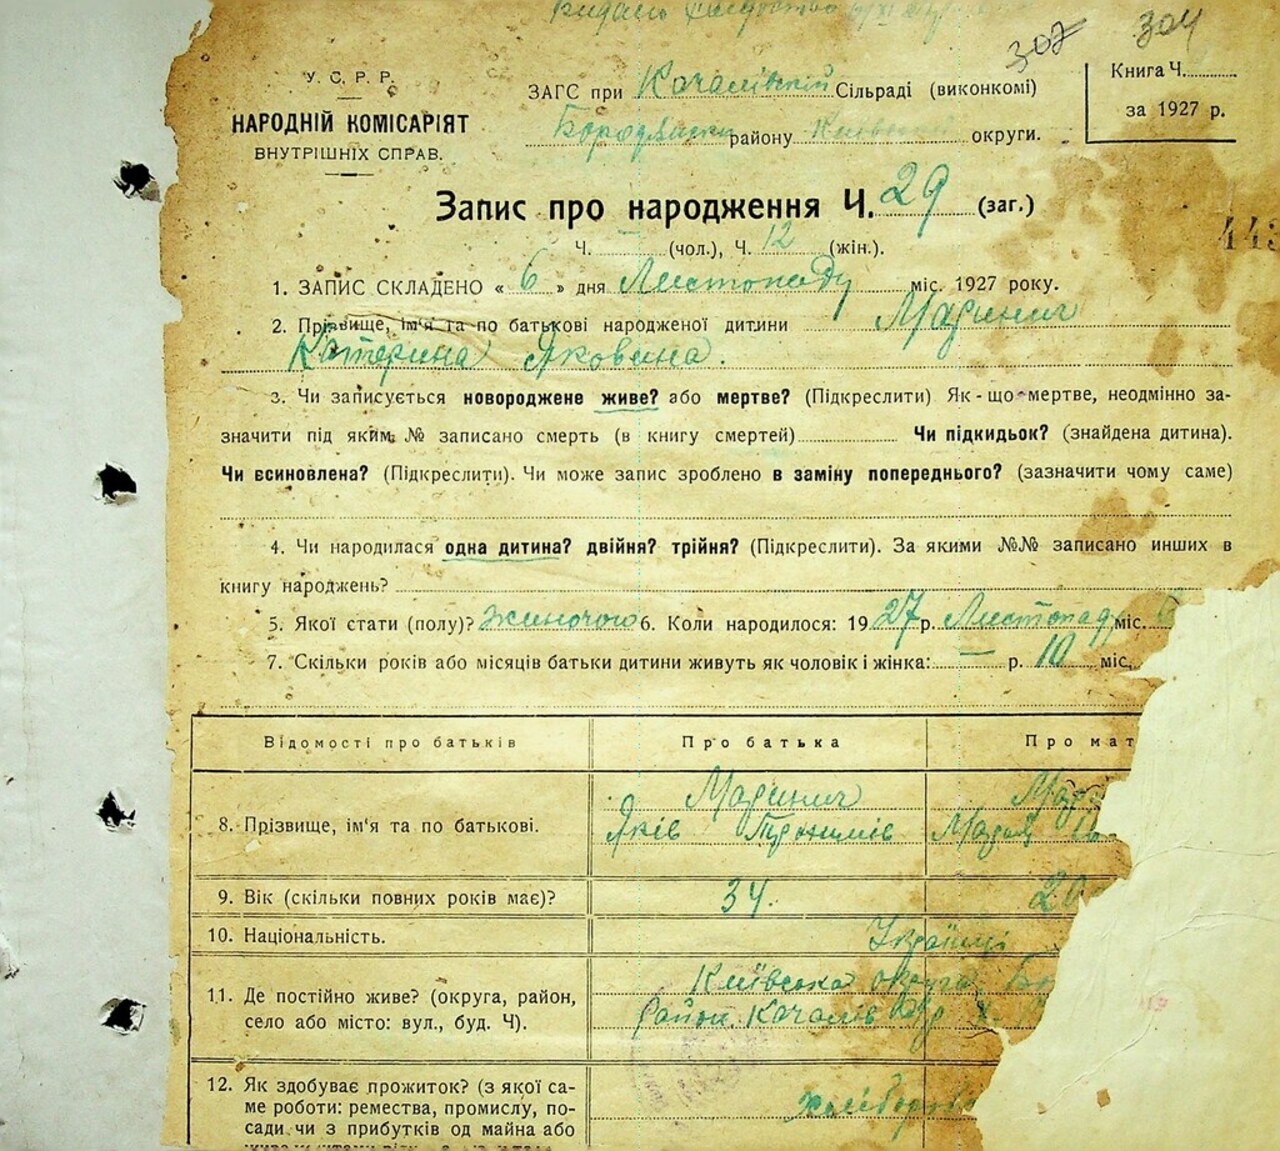 307 304
У. С. Р. Р.
НАРОДНІЙ КОМІСАРІЯТ
ВНУТРІШНІХ СПРАВ.
ЗАГС при Качалівській Сільраді (виконкомі)
району Київської округи.
Книга Ч.
за 1927 р.
Запис про народження Ч. 29 (заг.)
Ч. — (чол.), Ч. 12 (жін.).
443
1. ЗАПИС СКЛАДЕНО « 6 » дня Листопаду міс. 1927 року.
2. Прізвище, ім'я та по батькові народженої дитини Маринич
Катерина Яковина.
3. Чи записується новороджене живе? або мертве? (Підкреслити) Як-що мертве, неодмінно за-
значити під яким № записано смерть (в книгу смертей) Чи підкидьок? (знайдена дитина).
Чи всиновлена? (Підкреслити). Чи може запис зроблено в заміну попереднього? (зазначити чому саме)
4. Чи народилася одна дитина? двійня? трійня? (Підкреслити). За якими №№ записано инших в
книгу народжень?
5. Якої стати (полу)? жиночого 6. Коли народилося: 1927 р. Листопаду міс. 6
7. Скільки років або місяців батьки дитини живуть як чоловік і жінка: — р. 10 міс.
Відомості про батьків Про батька Про мат
8. Прізвище, ім'я та по батькові.
Маринич Мар
Яків
9. Вік (скільки повних років має)? 34. 20
10. Національність. Українці
11. Де постійно живе? (округа, район,
село або місто: вул., буд. Ч).
Київська округа Бо
район. Качалів
12. Як здобуває прожиток? (з якої са-
ме роботи: ремества, промислу, по-
сади чи з прибутків од майна або